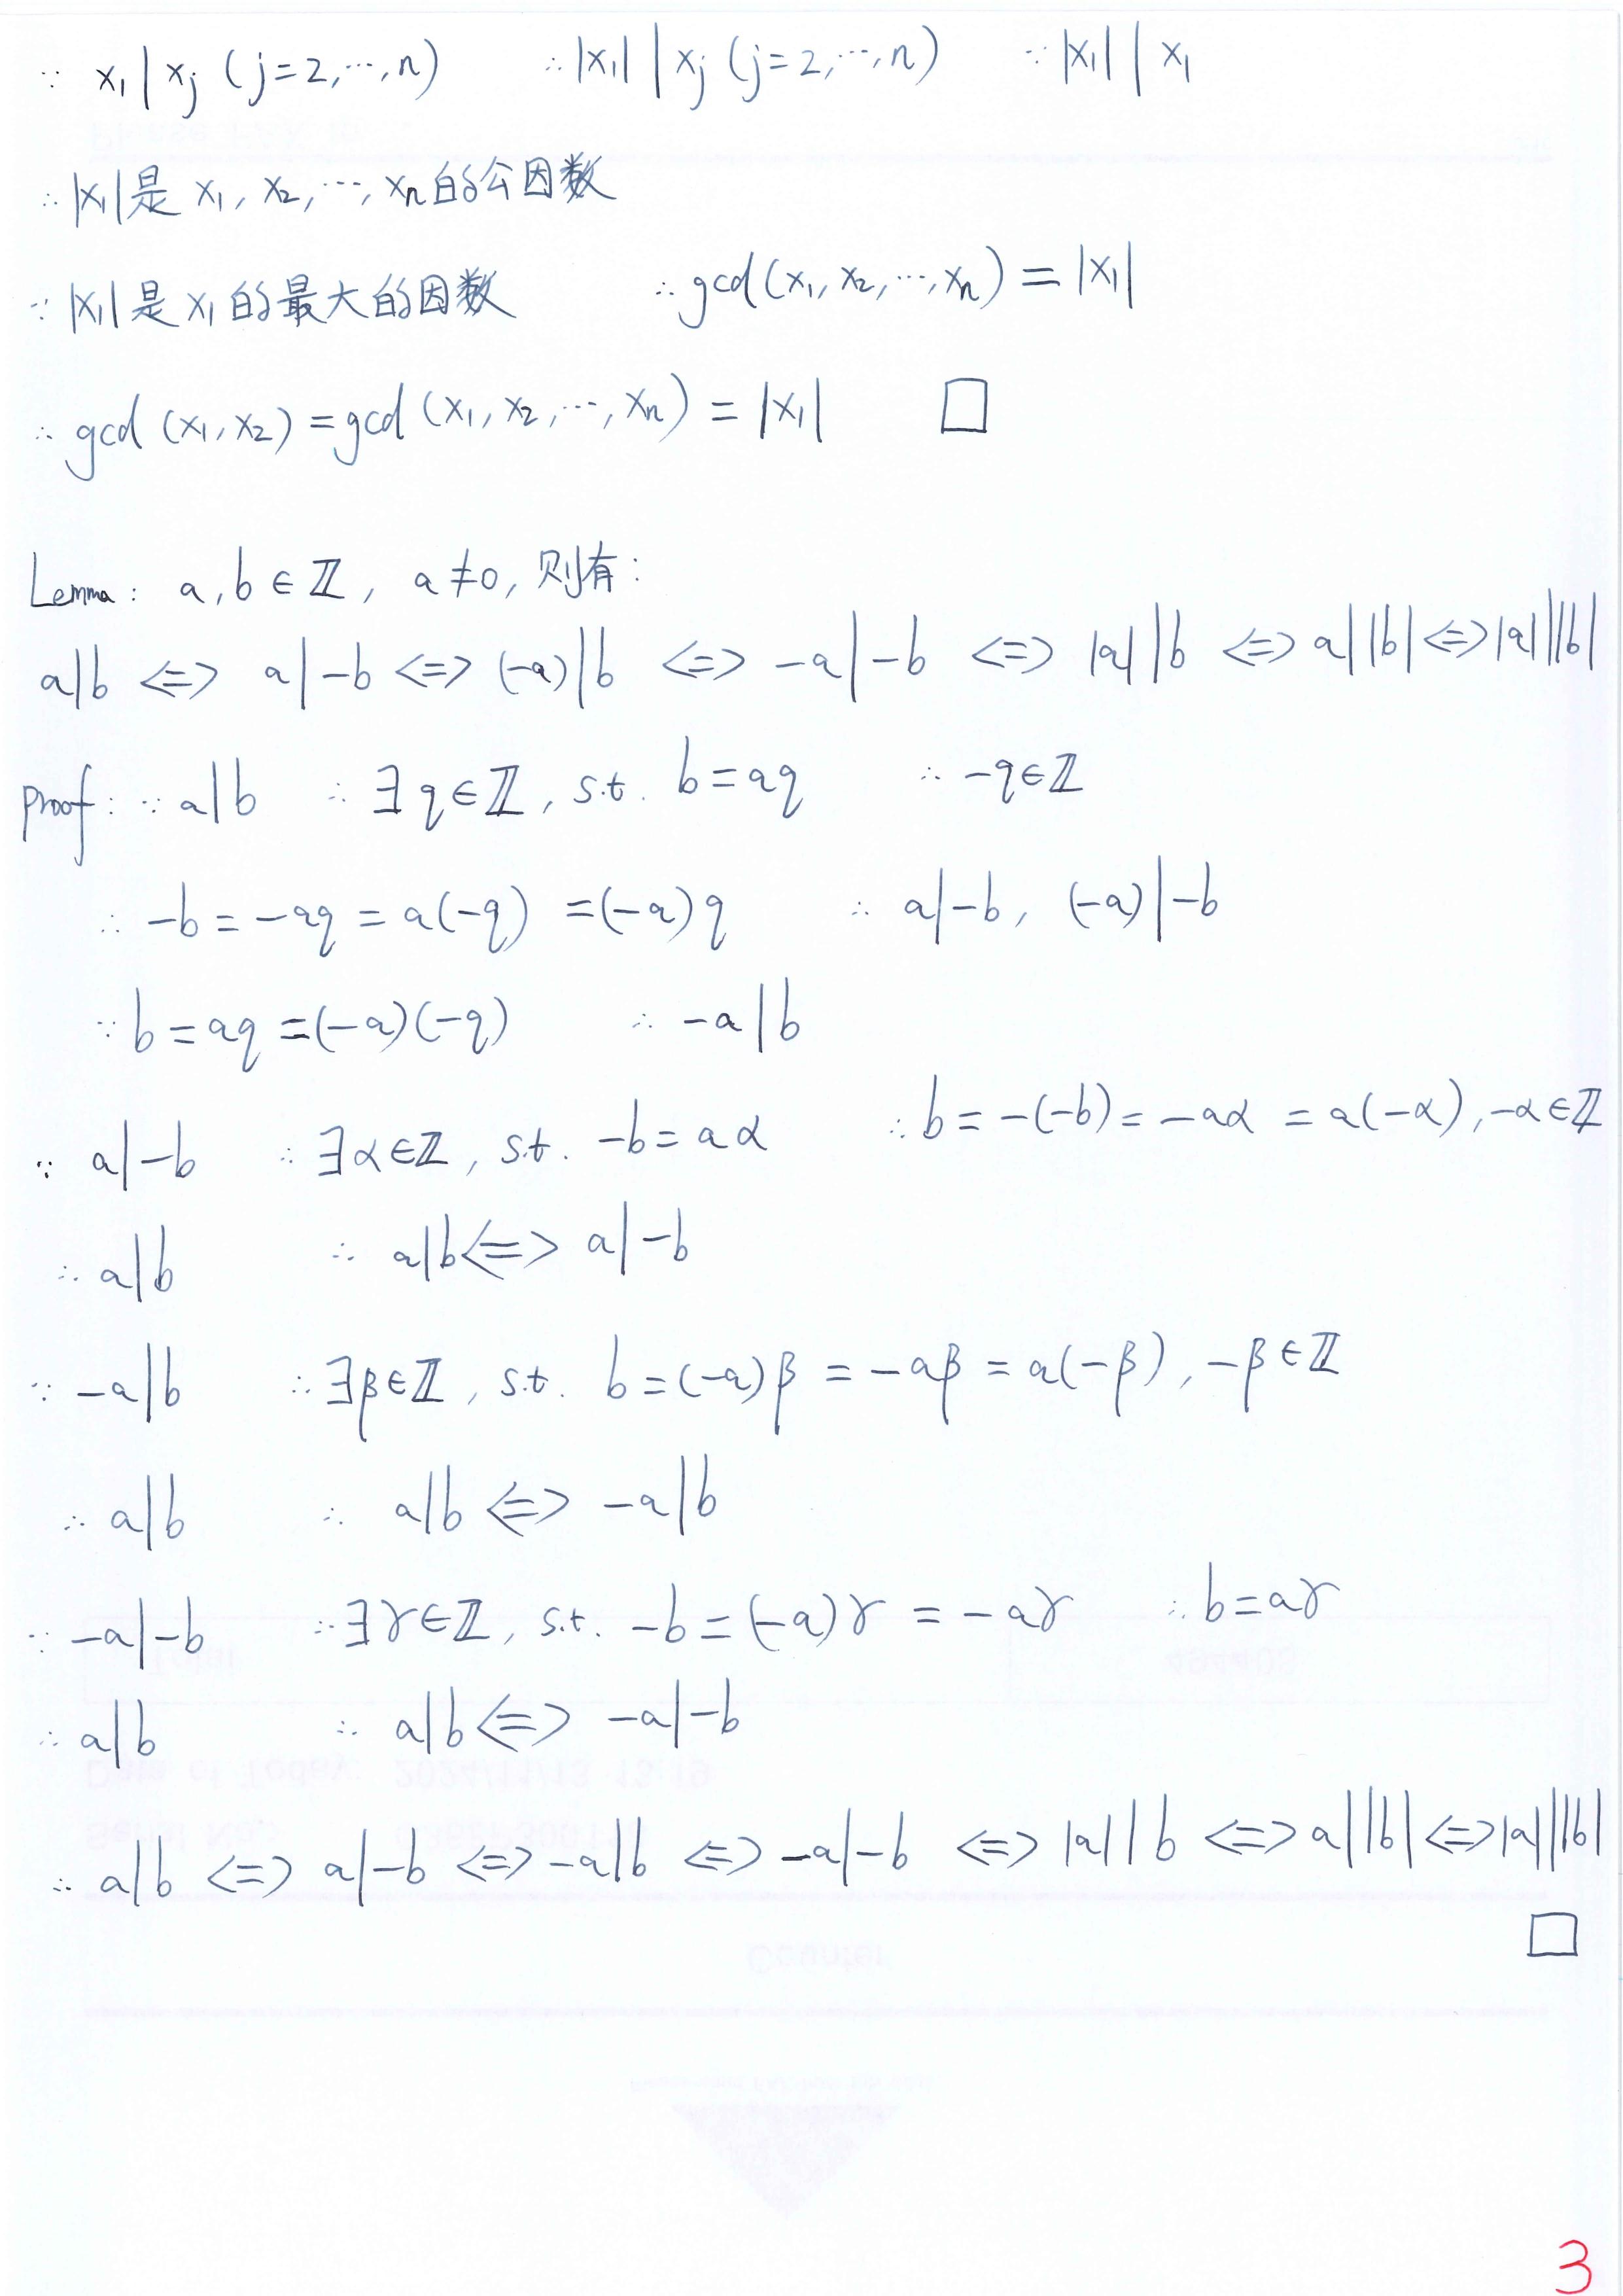 ∵ x₁|xⱼ (j=2,⋯,n) ∴ |x₁| | xⱼ (j=2,⋯,n) ∵ |x₁| | x₁
∴ |x₁|是 x₁, x₂,⋯, xₙ的公因数
∵ |x₁|是 x₁的最大的因数 ∴ gcd(x₁, x₂,⋯,xₙ) = |x₁|
∴ gcd (x₁, x₂) = gcd (x₁, x₂,⋯, xₙ) = |x₁| □
Lemma: a, b ∈ ℤ, a≠0, 则有:
a|b ⇔ a|-b ⇔ (-a)|b ⇔ -a|-b ⇔ |a| | b ⇔ a | |b| ⇔ |a| | |b|
Proof: ∵ a|b ∴ ∃ q∈ℤ, s.t. b=aq ∴ -q∈ℤ
∴ -b = -aq = a(-q) =(-a)q ∴ a|-b, (-a)|-b
∵ b = aq =(-a)(-q) ∴ -a|b
∵ a|-b ∴ ∃α∈ℤ, s.t. -b = aα ∴ b = -(-b) = -aα = a(-α), -α∈ℤ
∴ a|b ∴ a|b ⇔ a|-b
∵ -a|b ∴ ∃β∈ℤ, s.t. b =(-a)β = -aβ = a(-β), -β∈ℤ
∴ a|b ∴ a|b ⇔ -a|b
∵ -a|-b ∴ ∃γ∈ℤ, s.t. -b = (-a)γ = -aγ ∴ b=aγ
∴ a|b ∴ a|b ⇔ -a|-b
∴ a|b ⇔ a|-b ⇔ -a|b ⇔ -a|-b ⇔ |a| | b ⇔ a | |b| ⇔ |a| | |b|
□
3